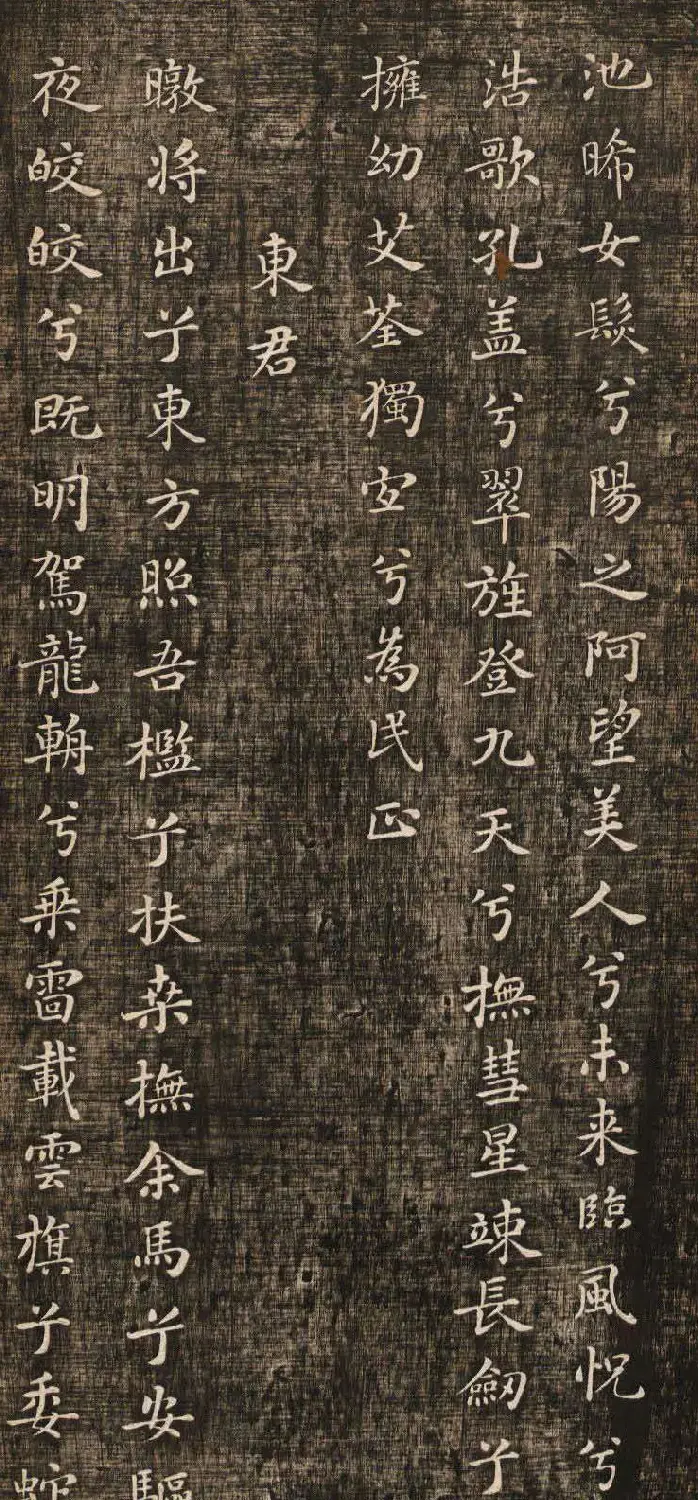 池晞女髮兮陽之阿望美人兮未来臨風怳兮
浩歌孔盖兮翠旌登九天兮撫彗星竦長劒兮
擁幼艾荃獨宜兮為民正
東君
暾将出兮東方照吾檻兮扶桒撫余馬兮安驅
夜皎皎兮既明駕龍輈兮乗雷載雲旗兮委蛇